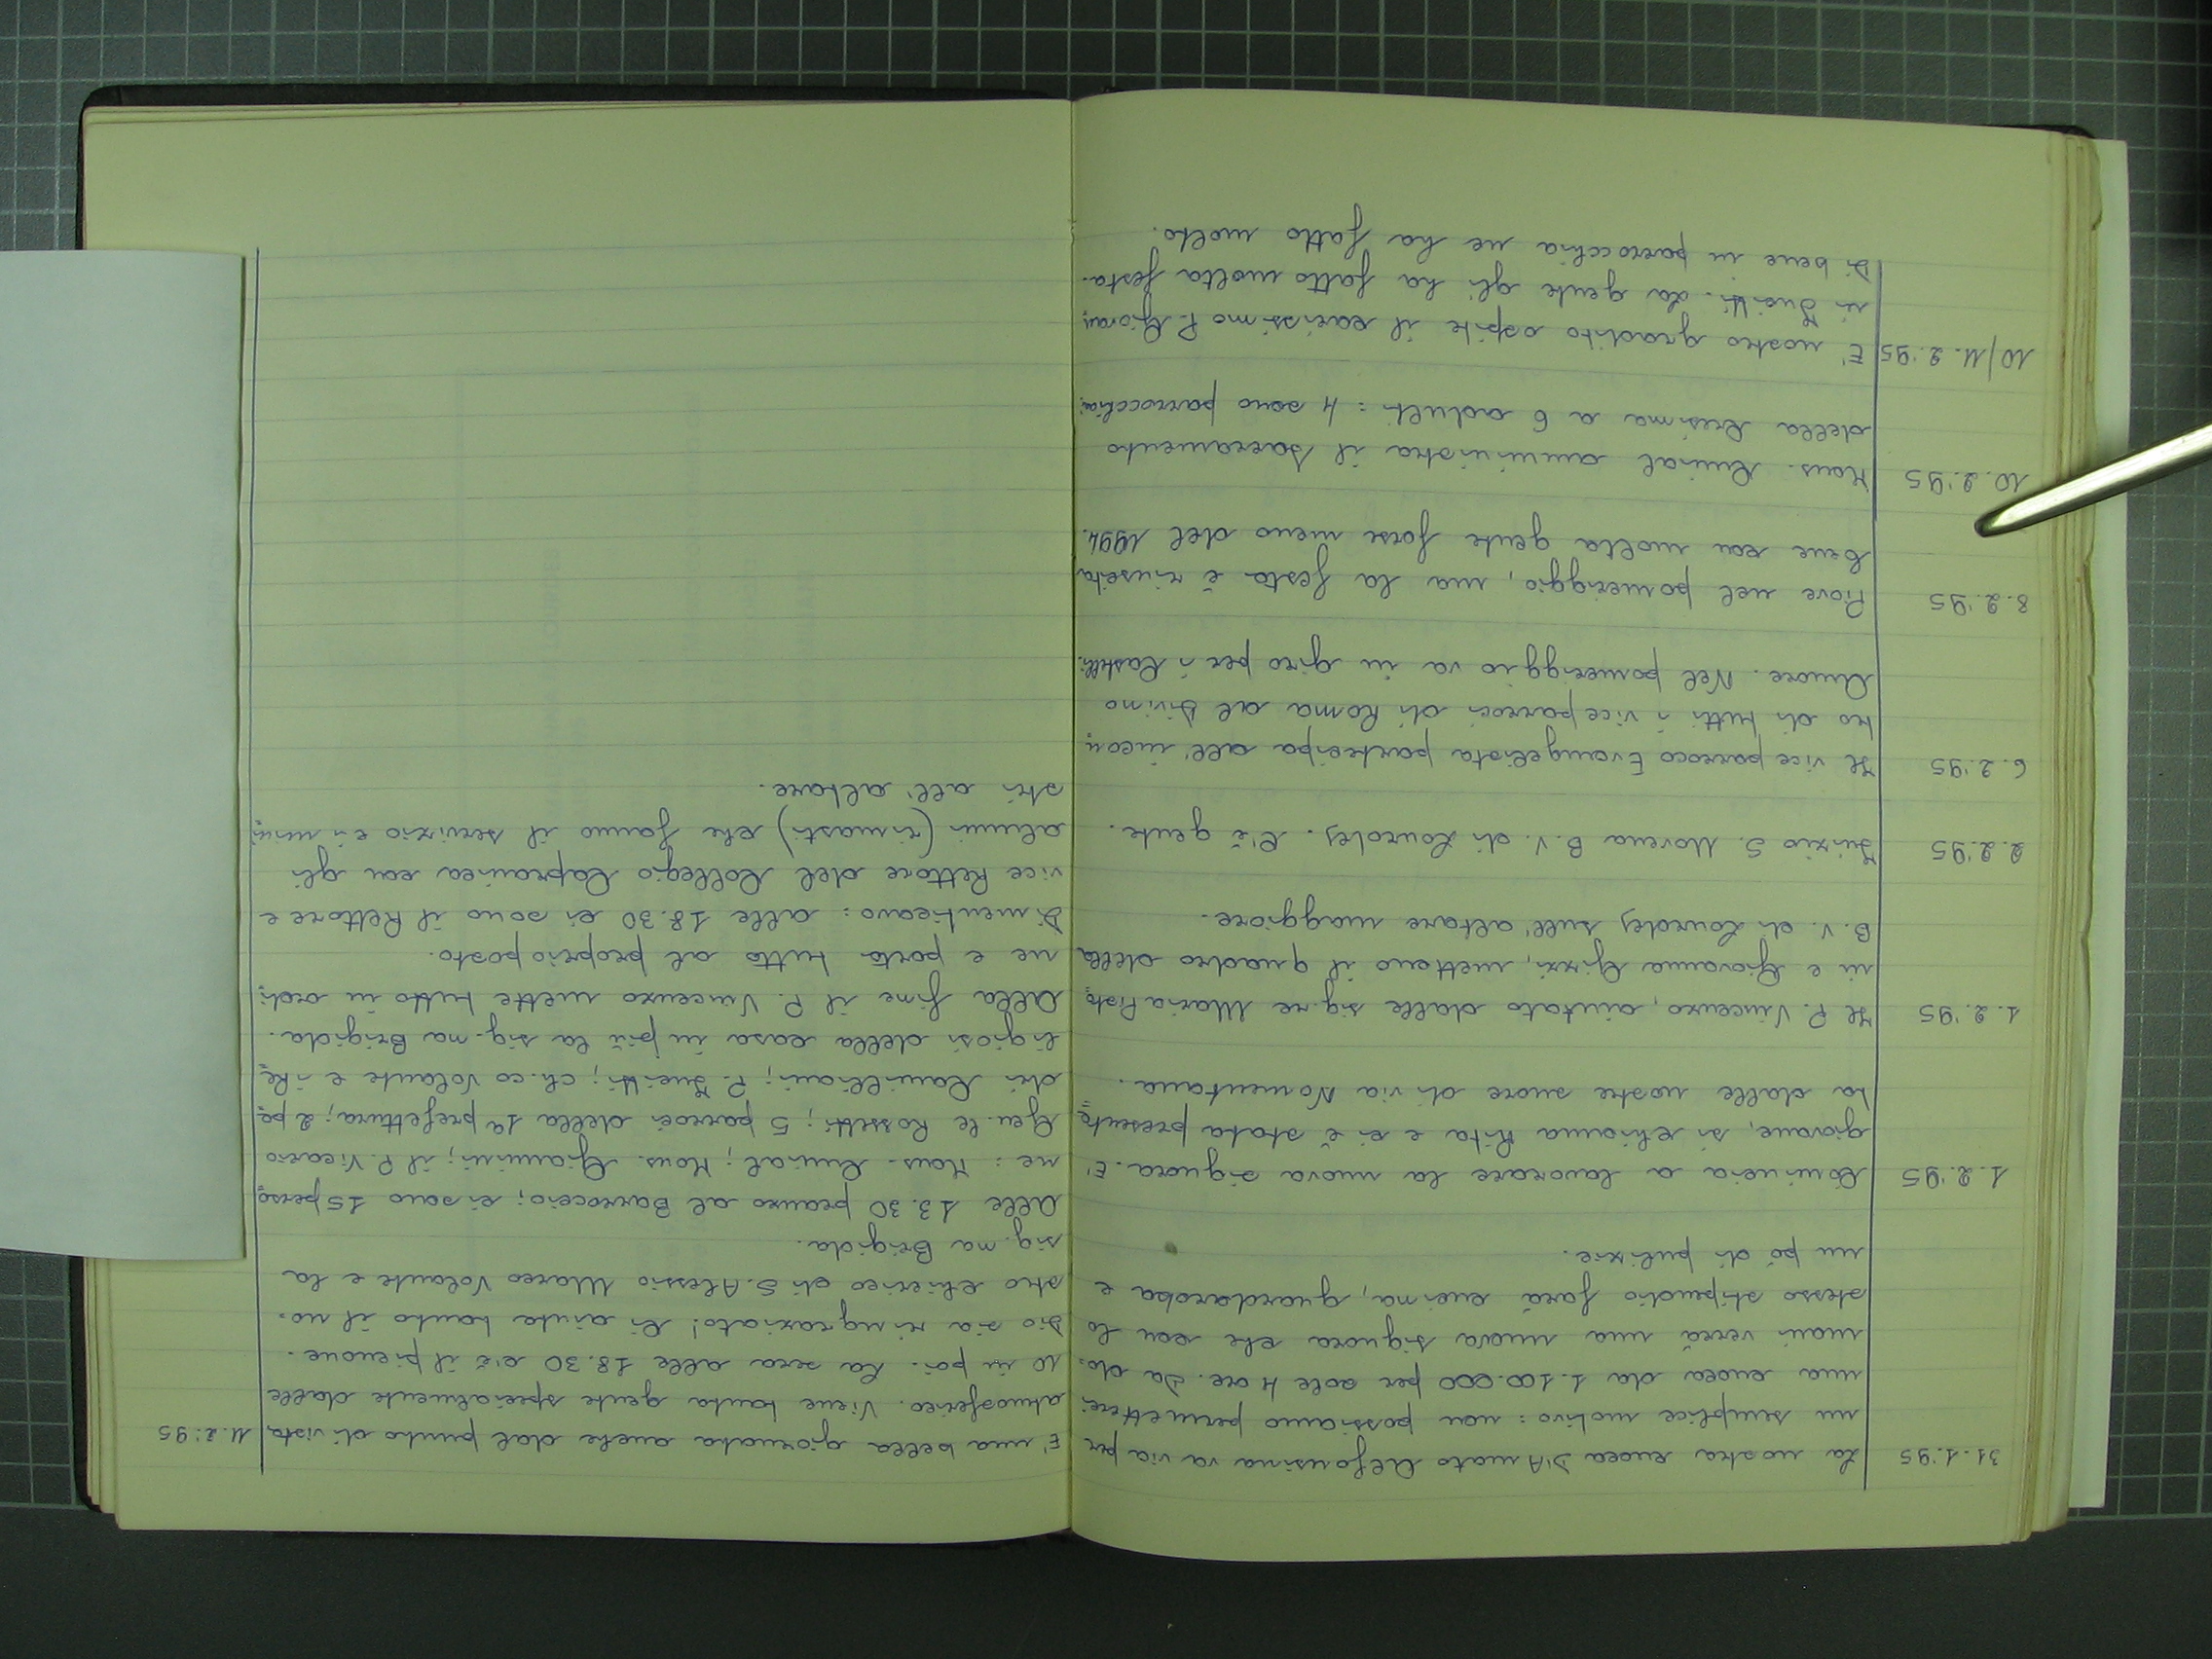 31.1.'95 La nostra cuoca D'Amato Alfonsina va via per
un semplice motivo: non possiamo permetterci
una cuoca da 1.100.000 per sole 4 ore. Da do-
mani verrà una nuova signora che con lo
stesso stipendio farà cucina, guardaroba e
un pò di pulizie.
1.2.'95 Comincia a lavorare la nuova signora. E'
giovane, si chiama Rita e ci è stata presenta
ta dalle nostre suore di via Nomentana.
1.2.'95 Il P. Vincenzo, aiutato dalle sig.re Maria Pisto
ni e Giovanna Gizzi, mettono il quadro della
B.V. di Lourdes sull'altare maggiore.
2.2.'95 Inizio S. Novena B.V. di Lourdes. C'è gente.
6.2.'95 Il vice parroco Evangelista partecipa all'incon
tro di tutti i vice parroci di Roma al Divino
Amore. Nel pomeriggio va in giro per i Castelli.
8.2.'95 Piove nel pomeriggio, ma la festa è riuscita
bene con molta gente forse meno del 1994.
10.2.'95 Mons. amministra il Sacramento
della Cresima a 6 adulti: 4 sono parrocchiani
10/11.2.'95 E' nostro gradito ospite il carissimo P. Giovan
ni Iucitti. La gente gli ha fatto molta festa.
Di bene in parrocchia ne ha fatto molto.
11.2.'95 E' una bella giornata anche dal punto di vista
atmosferico. Viene tanta gente specialmente dalle
10 in poi. La sera alle 18.30 c'è il pienone.
Dio sia ringraziato! Ci aiuta tanto il no-
stro chierico di S. Alessio Marco Volante e la
sig.ma Brigida.
Alle 13.30 pranzo al Barroccio; ci sono 15 perso
ne: Mons. ; Mons. Giannini; il P. Vicario
Gen.le Rossetti; 5 parroci della 1ª prefettura; 2 pa
dri Camilliani; P. Iucitti; ch.co Volante e i Re
ligiosi della casa in più la sig.ma Brigida.
Alla fine il P. Vincenzo mette tutto in ordi
ne e porta tutto al proprio posto.
Dimenticavo: alle 18.30 ci sono il Rettore e
vice Rettore del Collegio Capranica con gli
alunni (rimasti) che fanno il servizio e i mini
stri all'altare.